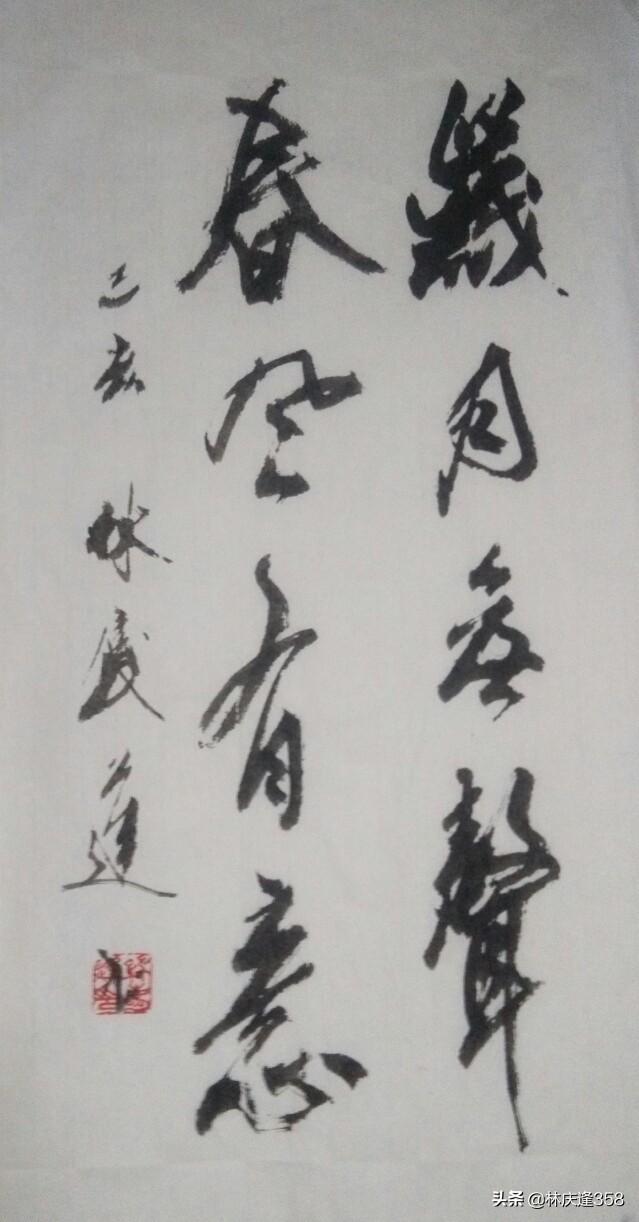 歲月無聲
春風有意
己亥 林 道
头条 @林庆逢358